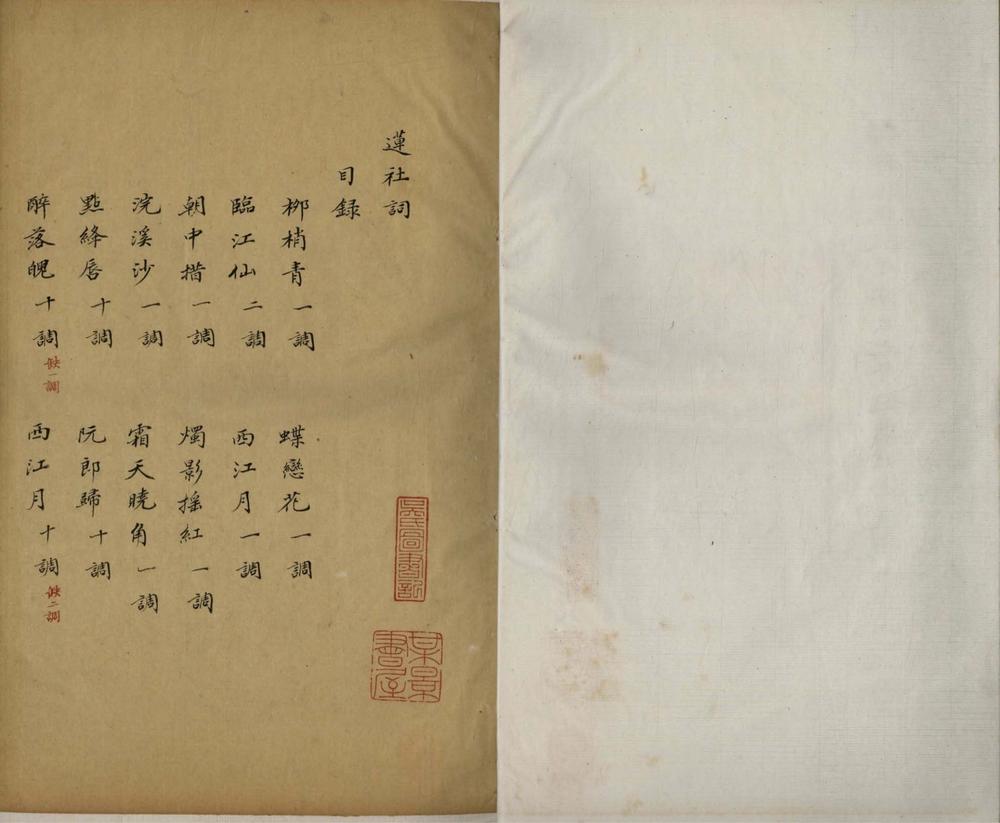 蓮社詞
目録
柳梢青 一調 蝶戀花 一調
臨江仙 二調 西江月 一調
朝中措 一調 燭影搖紅 一調
浣溪沙 一調 霜天曉角 一調
點絳唇 十調 阮郎歸 十調
醉落魄 十調 缺一調 西江月 十調 缺二調
吳氏圖書記
某景書屋